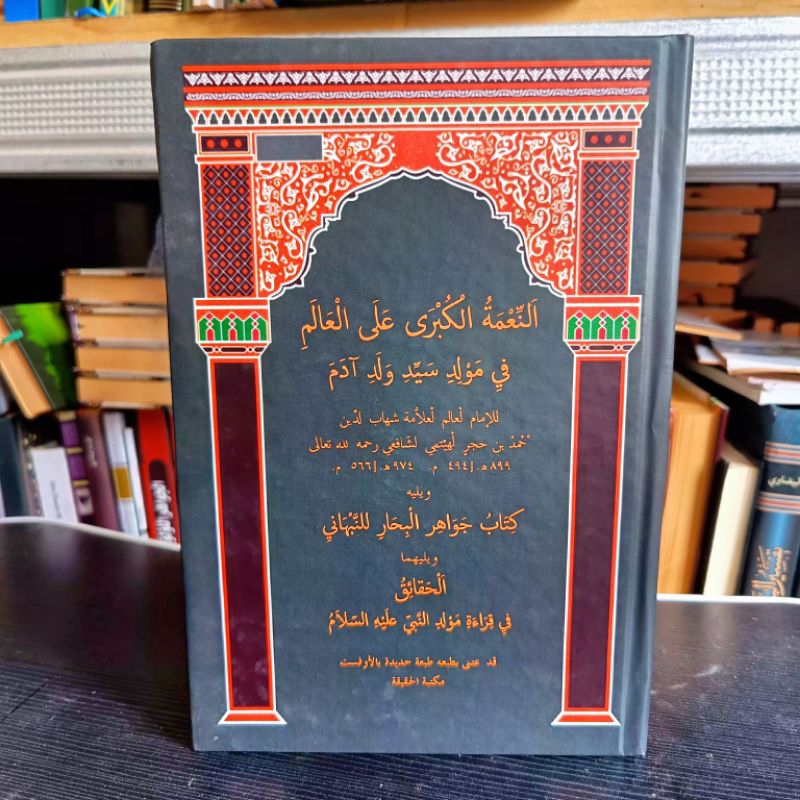 اَلنِّعْمَةُ الْكُبْرَى عَلَى الْعَالَمِ
فِي مَوْلِدِ سَيِّدِ وَلَدِ آدَمَ
للإمام لعالم لعلاّمة شهاب لدّين
حْمدْ بن حجر لهيْتمي لشّافعي رحمه لله تعالى
٨٩٩ هـ. [١٤٩٤ م. ٩٧٤ هـ. [١٥٦٦ م.
ويليه
كِتَابُ جَوَاهِرِ الْبِحَارِ لِلنَّبْهَانِي
ويليهما
اَلْحَقَائِقُ
فِي قِرَاءَةِ مَوْلِدِ النَّبِيِّ عَلَيْهِ السَّلاَمُ
قد عنى بطبعه طبعة جديدة بالأوفست
مكتبة الحقيقة
البقاري
تفسير